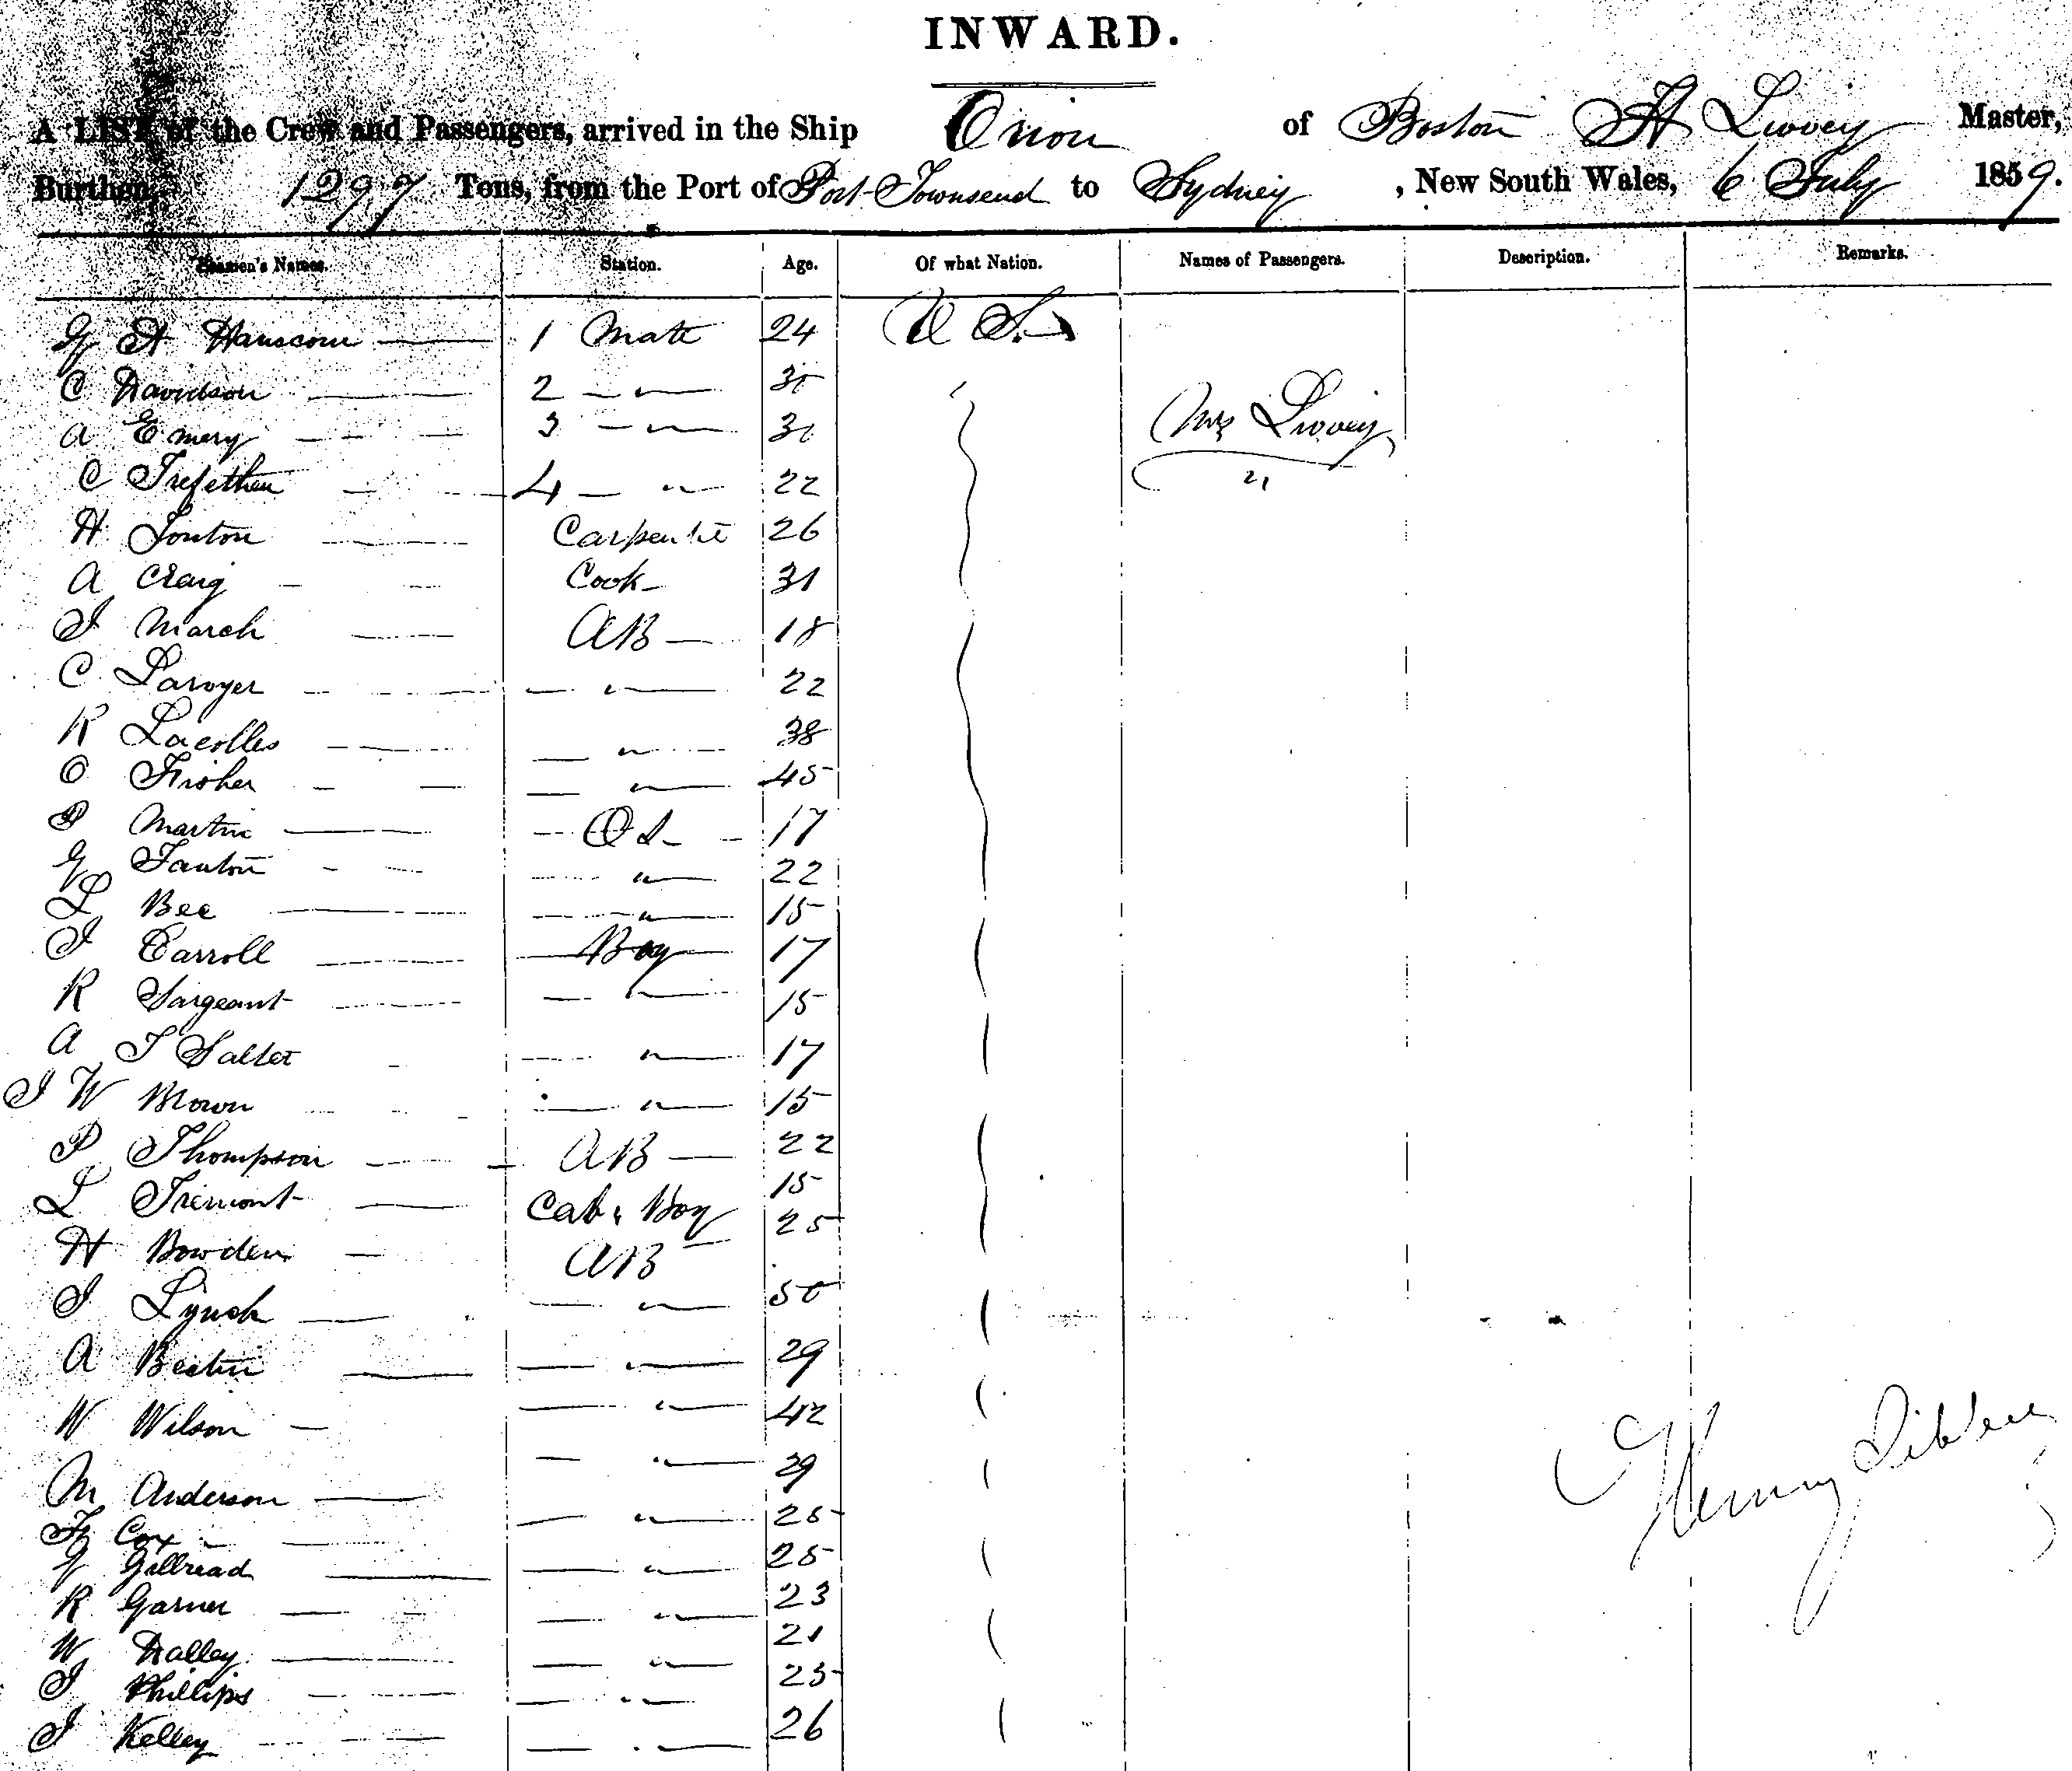 INWARD.
A LIST of the Crew and Passengers, arrived in the Ship Orion of Boston H Livvey Master,
Burthen, 1297 Tons, from the Port of Port Townsend to Sydney, New South Wales, 6 July 1859.
Seamen's Names. Station. Age. Of what Nation. Names of Passengers. Description. Remarks.
G H Hanscom 1 Mate 24 U S.
C Davidson 2 — " — 30
A Emery 3 — " — 30 Mrs Livvey
C Trefethen 4 — " — 22 "
H Fonton Carpenter 26
A Craig Cook 31
J March AB 18
C Lawyer — " — 22
R — " — 38
O Fisher — " — 45
P Martin OS 17
G Tanton — " — 22
L Bee — " — 15
J Carroll Boy 17
R Sargeant — " — 15
A T Salter — " — 17
J W Brown — " — 15
P Thompson AB 22
L Tremont Cab. Boy 15
H Bowden AB 25
J Lynch — " — 50
A — " — 29
W Wilson — " — 42
M Anderson — " — 29
Cox — " — 25
G Gillread — " — 25
R Garner — " — 23
W Dalley — " — 21
J Phillips — " — 25
J Kelley — " — 26
Henry